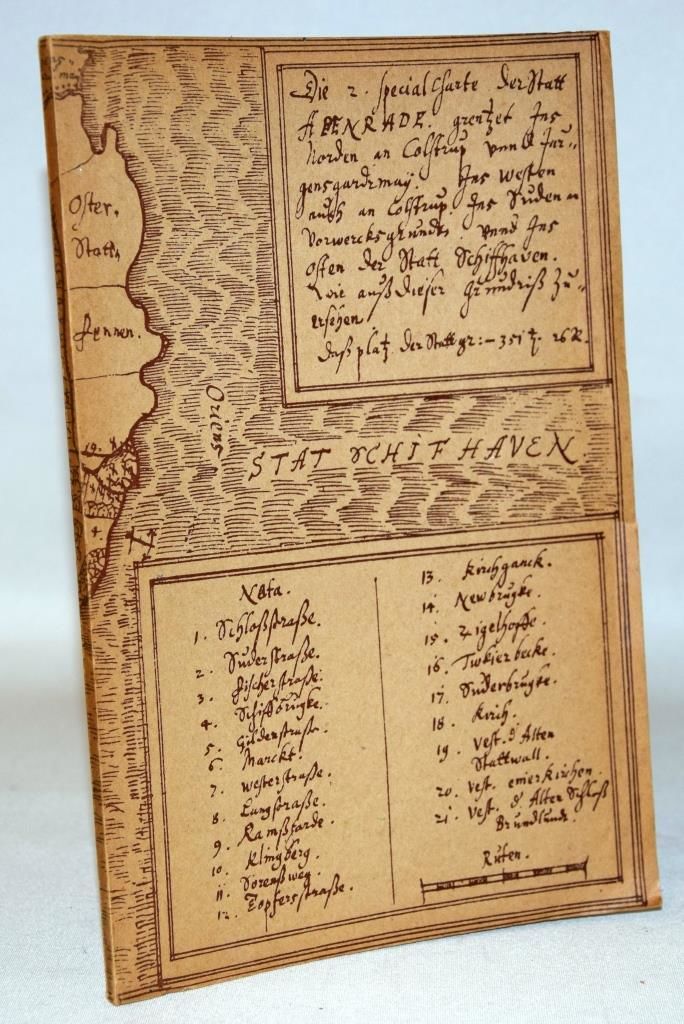 Die 2. special Charte der Statt
APENRADE. grentzet Ins
Norden an Colstrup vnnd Jur-
gensgardtmaÿ. Ins Westen
auch an Colstrup. Ins Suden an
Vorwercksgrundt, vnnd Ins
Osten der Statt Schiffhaven.
Wie auß dieser grundriß zu-
ersehen
Daß platz der Statt gr:- 351 26 R.
Oster.
Statt.
Rennen.
Oriens
STAT SCHIF HAVEN
19.
4.
Nota.
1. Schloßstraße.
2. Suderstraße.
3. fischerstraße.
4. Schiffbrugke.
5. Gildenstraße.
6. Marckt.
7. westerstraße.
8. Langstraße.
9. Ramßharde.
10. Klingberg.
11. Sorenßweg.
12. Topferstraße.
13. Kirchganck.
14. Newbrugke.
15. Zigelhoffe.
16. becke.
17. Suderbrugke.
18. Kirch.
19. Vest. d' Alten
Stattwall.
20. Vest. einer kirchen
21. Vest. d' Alten Schloß
Brundlund.
Ruten.